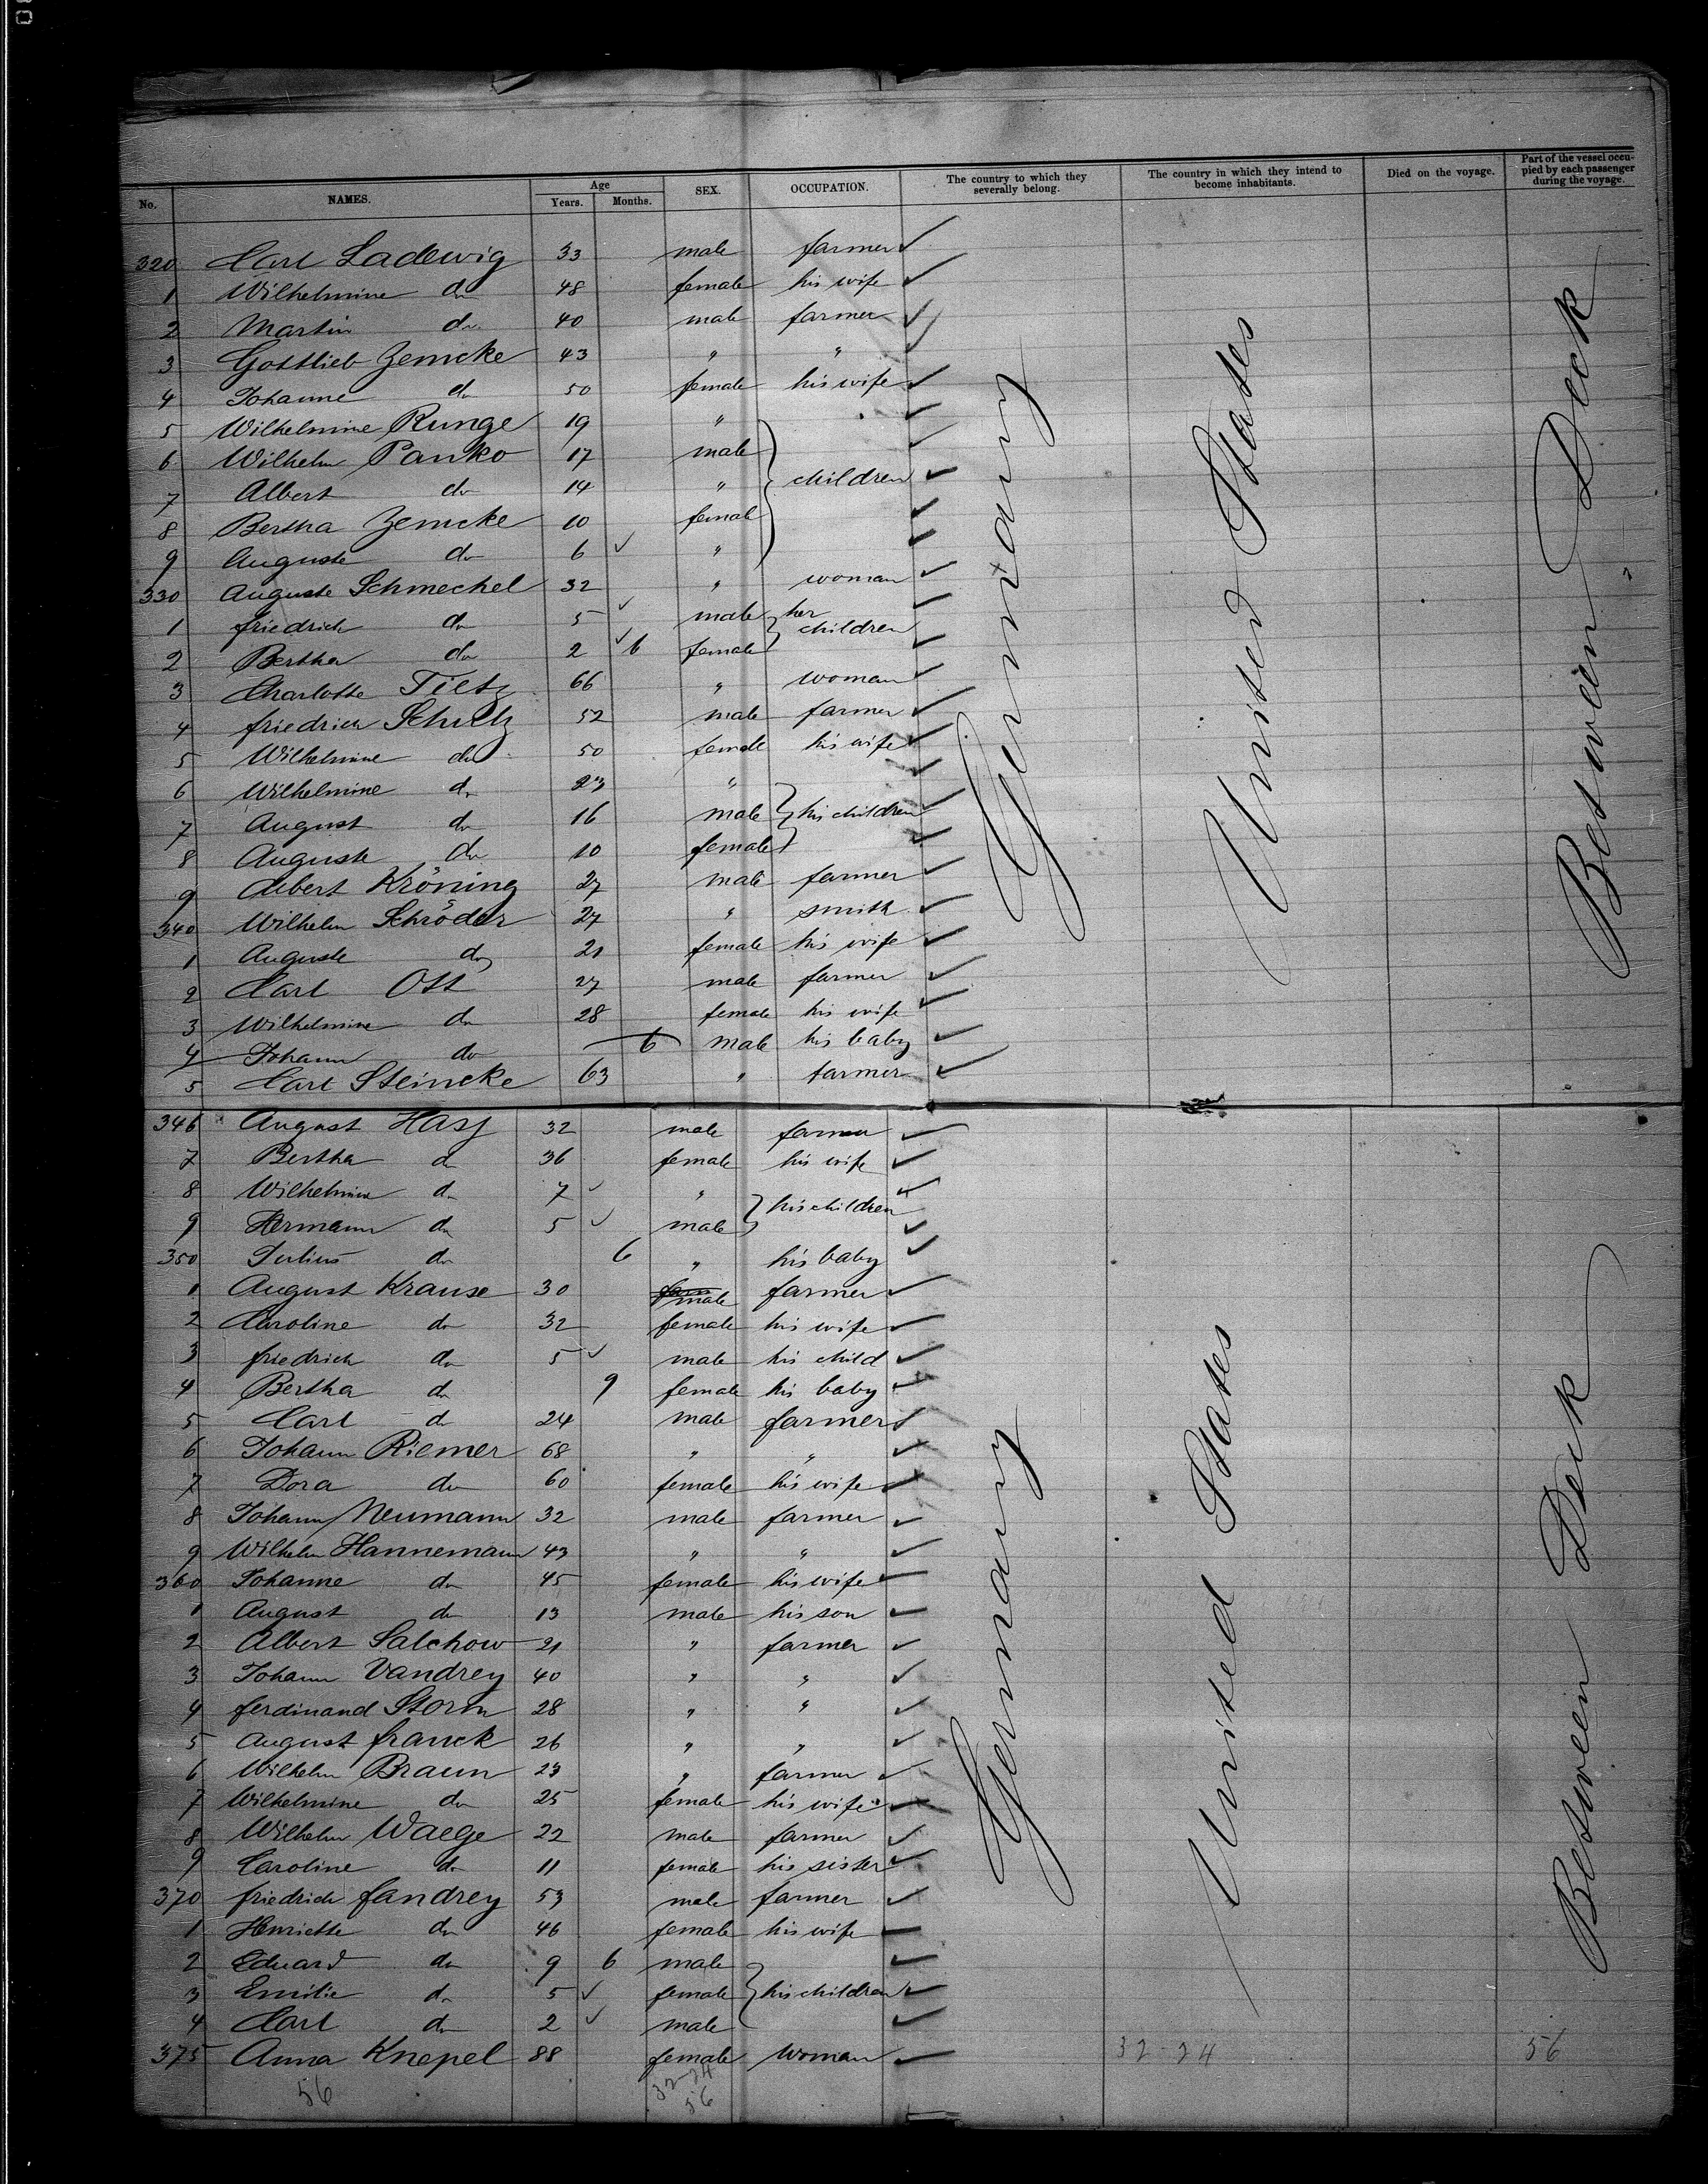 No. NAMES. Age Years. Months. SEX. OCCUPATION. The country to which they severally belong. The country in which they intend to become inhabitants. Died on the voyage. Part of the vessel occupied by each passenger during the voyage.
320 Carl Ladewig 33 male farmer
1 Wilhelmine do 48 female his wife
2 Martin do 40 male farmer
3 Gottlieb Zemcke 43 " "
4 Johanne do 50 female his wife
5 Wilhelmine Runge 19 "
6 Wilhelm Panko 17 male
7 Albert do 14 " children
8 Bertha Zemcke 10 female
9 Auguste do 6 "
330 Auguste Schmechel 32 " woman
1 friedrich do 5 male her
2 Bertha do 2 6 female children
3 Charlotte Tietz 66 " woman
4 friedrich Schulz 52 male farmer
5 Wilhelmine do 50 female his wife
6 Wilhelmine do 23 "
7 August do 16 male his children
8 Auguste do 10 female
9 Albert Kröning 27 male farmer
340 Wilhelm Schröder 27 " smith
1 Auguste do 21 female his wife
2 Carl Ott 27 male farmer
3 Wilhelmine do 28 female his wife
4 Johann do 6 male his baby
5 Carl Steincke 63 " farmer
Germany United States Between Deck
346 August Hass 32 male farmer
7 Bertha do 36 female his wife
8 Wilhelmine do 7 " his children
9 Hermann do 5 male
350 Julius do 6 " his baby
1 August Krause 30 male farmer
2 Caroline do 32 female his wife
3 friedrich do 5 male his child
4 Bertha do 9 female his baby
5 Carl do 24 male farmer
6 Johann Riemer 68 " "
7 Dora do 60 female his wife
8 Johann Neumann 32 male farmer
9 Wilhelm Hannemann 43 " "
360 Johanne do 45 female his wife
1 August do 13 male his son
2 Albert Salchow 21 " farmer
3 Johann Vandrey 40 " "
4 ferdinand Storm 28 " "
5 August franck 26 " "
6 Wilhelm Braun 23 " farmer
7 Wilhelmine do 25 female his wife
8 Wilhelm Waege 22 male farmer
9 Caroline do 11 female his sister
370 friedrich fandrey 53 male farmer
1 Henriette do 46 female his wife
2 Eduard do 9 6 male
3 Emilie do 5 female his children
4 Carl do 2 male
375 Anna Knepel 88 female woman
Germany United States Between Deck
32-24 56
56 32-24
56